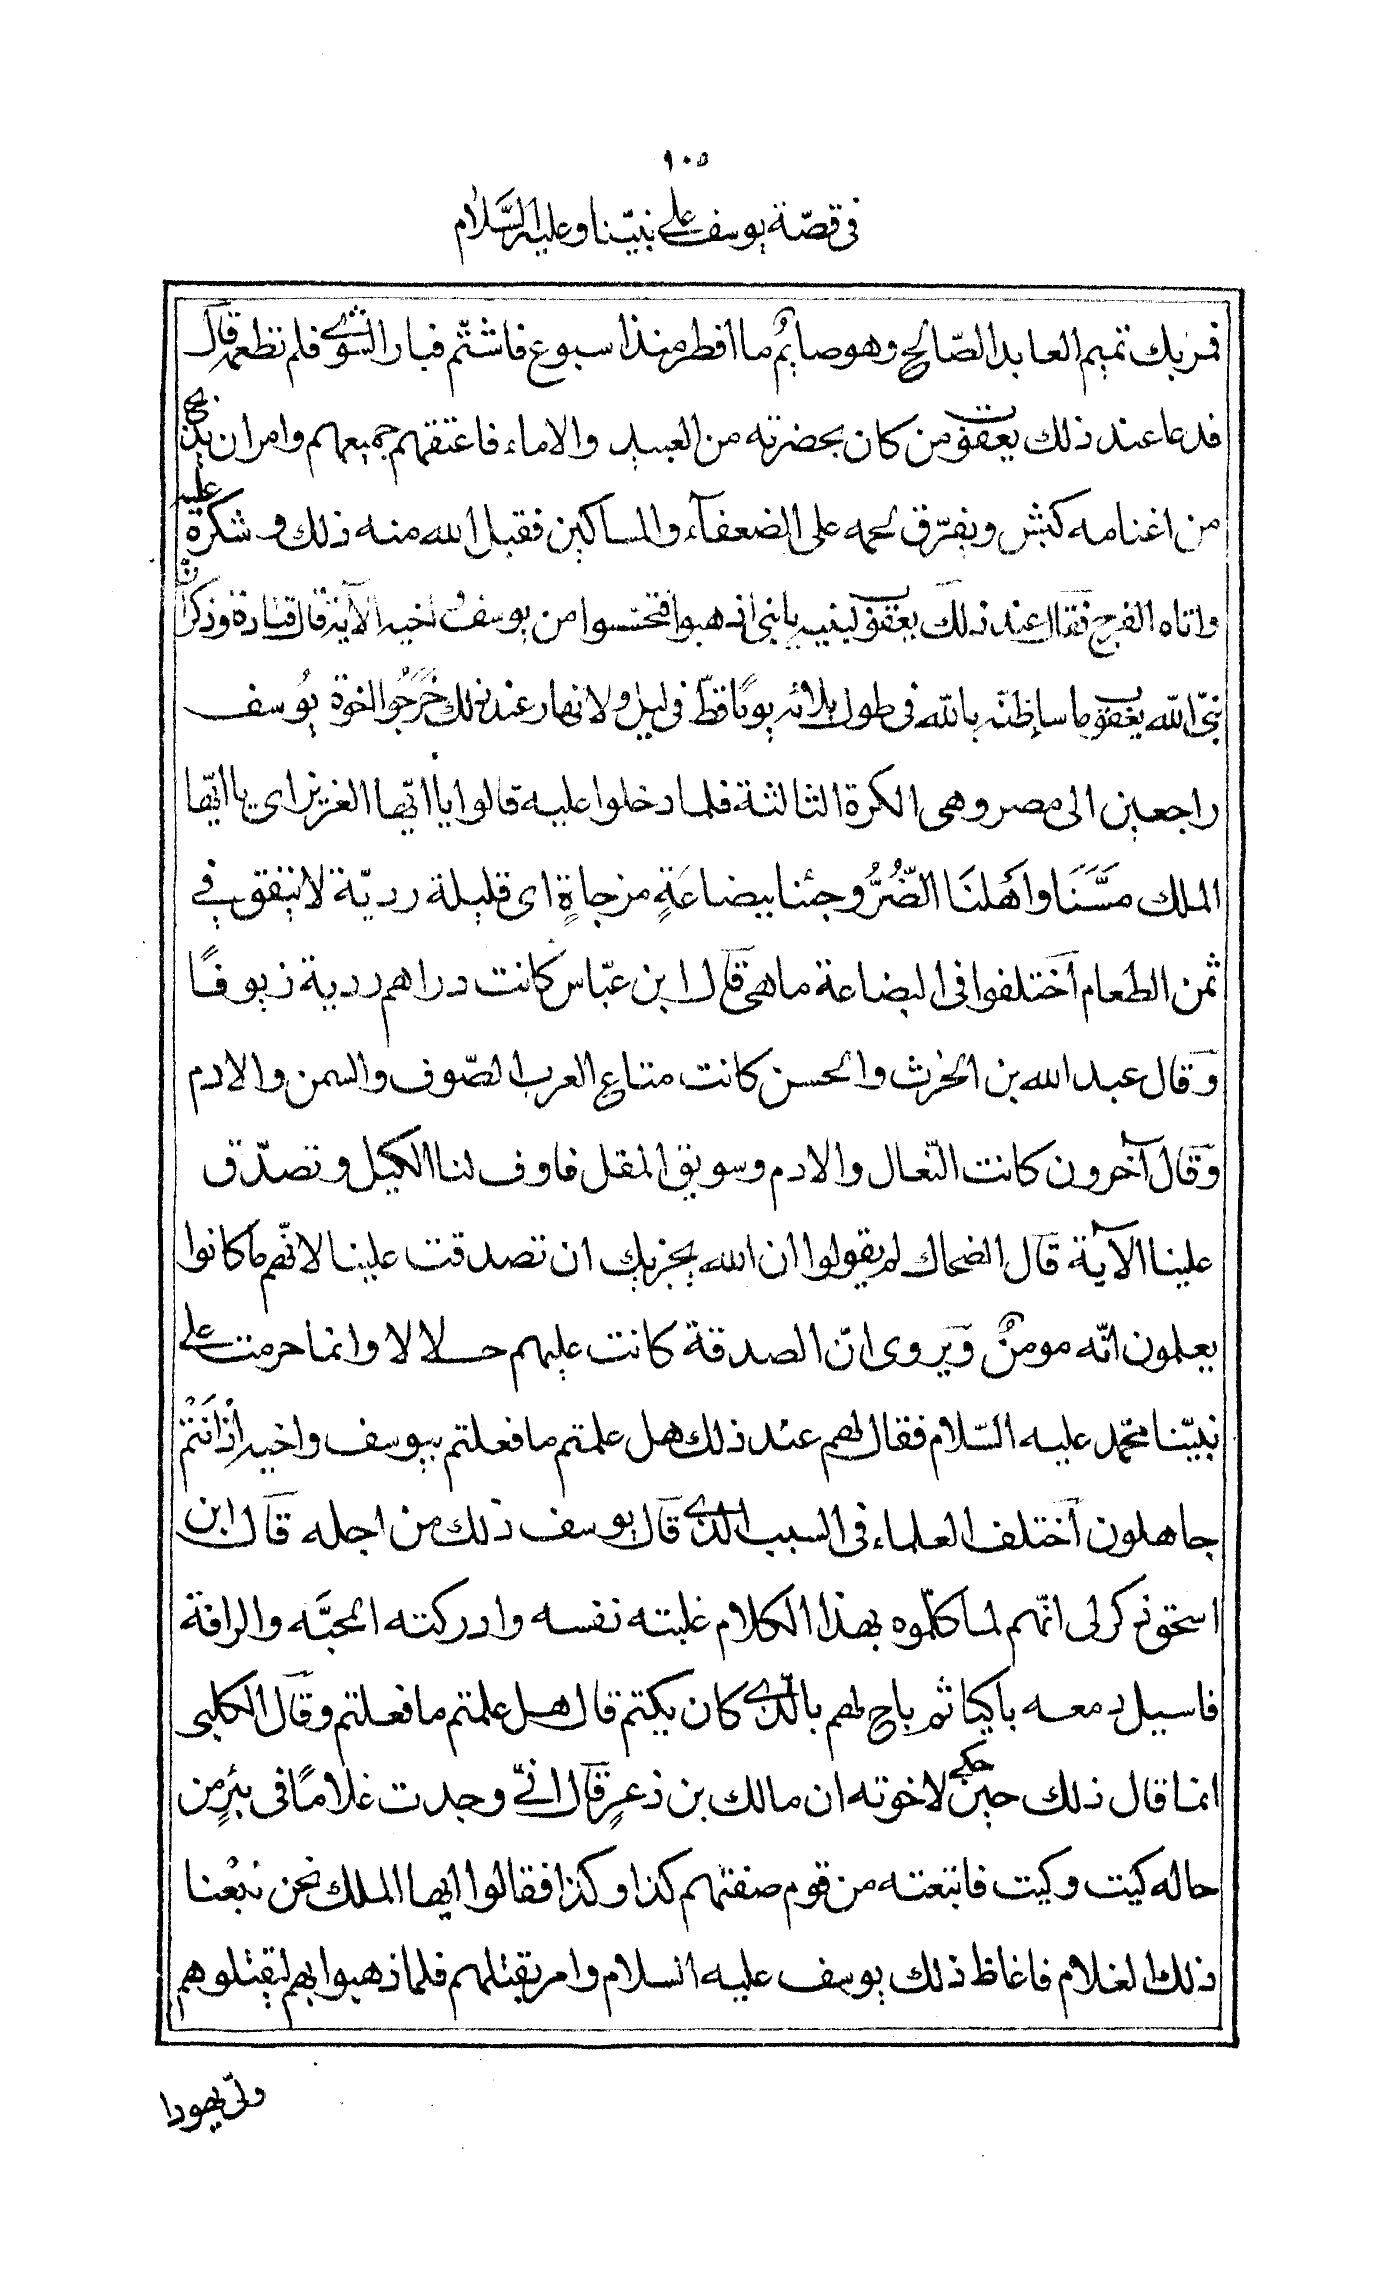 ١٠٥
في قصّة يوسف على نبيّنا وعليه السّلام
فمر بك تميم العابد الصّالح وهو صايمٌ ما افطر منذ اسبوع فاشتّم قبار الشوى فلم تطعمه قال
فدعا عند ذلك يعقوب من كان بحضرته من العبيد والاماء فاعتقهم جميعهم وامر ان يذبح
من اغنامه كبش ويفرّق لحمه على الضعفآء والمساكين فقبل الله منه ذلك وشكره عليه
واتاه الفرج فقال عند ذلك يعقوب لبنيه يا بنى اذهبوا فتحسسوا من يوسف واخيه الآية قال قتادة وذكر ان
نبىّ الله يعقوب ما ساء ظنّه بالله في طول بلائه يومًا قطّ في ليل ولا نهار عند ذلك خَرَجُوا اخوة يُوسف
راجعين الى مصر وهى الكرة الثالثة فلما دخلوا عليه قالوا يا ايّها العزيز اى يا ايّها
الملك مسَّنَا واَهلنَا الضُّرُّ وجئنا ببضاعَةٍ مزجاةٍ اى قليلة رديّة لا تنفق في
ثمن الطعام اختلفوا في البضاعة ما هى قال ابن عبّاس كانت دراهم ردية زيوفًا
وقال عبد الله بن الحرث والحسن كانت متاع العرب الصّوف والسمن والادم
وقال آخرون كانت النّعال والادم وسويق المقل فاوف لنا الكيل وتصدّق
علينا الآية قال الضحاك لم يقولوا ان الله يجزيك ان تصدقت علينا لانّهم ما كانوا
يعلمون انّه مومنٌ ويروى انّ الصدقة كانت عليهم حلالا وانما حرمت على
نبيّنا محمّد عليه السّلام فقال لهم عند ذلك هل علمتم ما فعلتم بيوسف واخيه اِذْ اَنتُمْ
جاهلون اختلف العلماء في السبب الذى قال يوسف ذلك من اجله قال ابن
اسحق ذكر لى انّهم لما كلّموه بهذا الكلام غلبته نفسه وادركته المحبَّه والرافة
فاسيل دمعه باكيا ثم باح لهم بالذى كان يكتم قال هل علمتم ما فعلتم وقال الكلبى
انما قال ذلك حين حكى لاخوته ان مالك بن ذعرٍ قال انّي وجدت غلامًا فى بئرٍ من
حاله كيت وكيت فابتعته من قوم صفتهم كذا وكذا فقالوا ايها الملك نحن بَعْنا
ذلك الغلام فاغاظ ذلك يوسف عليه السلام وامر بقتلهم فلما ذهبوا بهم ليقتلوهم
ولّى يهودا